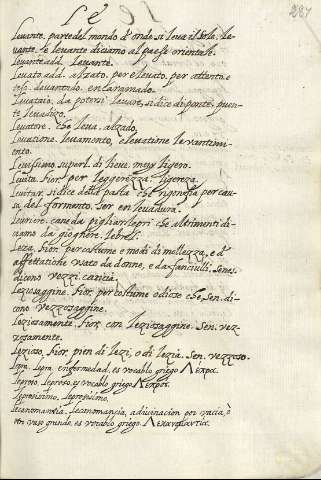 Le
287
Levante. parte del mondo d' onde si leva il Sole. le-
vante. e levante diciamo al paese orientale.
Levante add. Levante.
Levato add. alzato. per elevato, per attento, e
teso. levantado. encaramado.
Levatoio, da potersi levare, si dice di ponte. puen-
te levadizo.
Levatore. che leva. alzador.
Levatione. levamento, elevatione. levantimi-
ento.
Levissimo superl. di lieve. muy ligero.
Levità Fior. per leggerezza. ligereza.
Levitar, si dice della pasta che rigonfia per cau-
sa del formento. ser en levadura.
Levriere. cane da pigliar lepri che altrimenti di-
ciamo da gioghere. lebrel.
Lezia. Fior. per costume e modi di mollezza, e d'
affettatione usato da donne, e da fanciulli. Senes.
dicono vezzi. caricia.
Leziosaggine. Fior. per costume odisto che Sen. di-
cono vezzosaggine.
Leziosamente. Fior. con leziosaggine. Sen. vez-
zosamente.
Lezioso. Fior. pien di lezi, o di lezia. Sen. vezzoso.
Lepra. Lepra, enfermedad, es vocablo griego Λέπρα.
Leproso. Leproso, es vocablo griego Λεπρός.
Leprosissimo. Leprosissimo.
Lecanomantia. Lecanomancia, adivinacion por vacia, ò
vaso grande, es vocablo griego. Λεκανομαντεία.